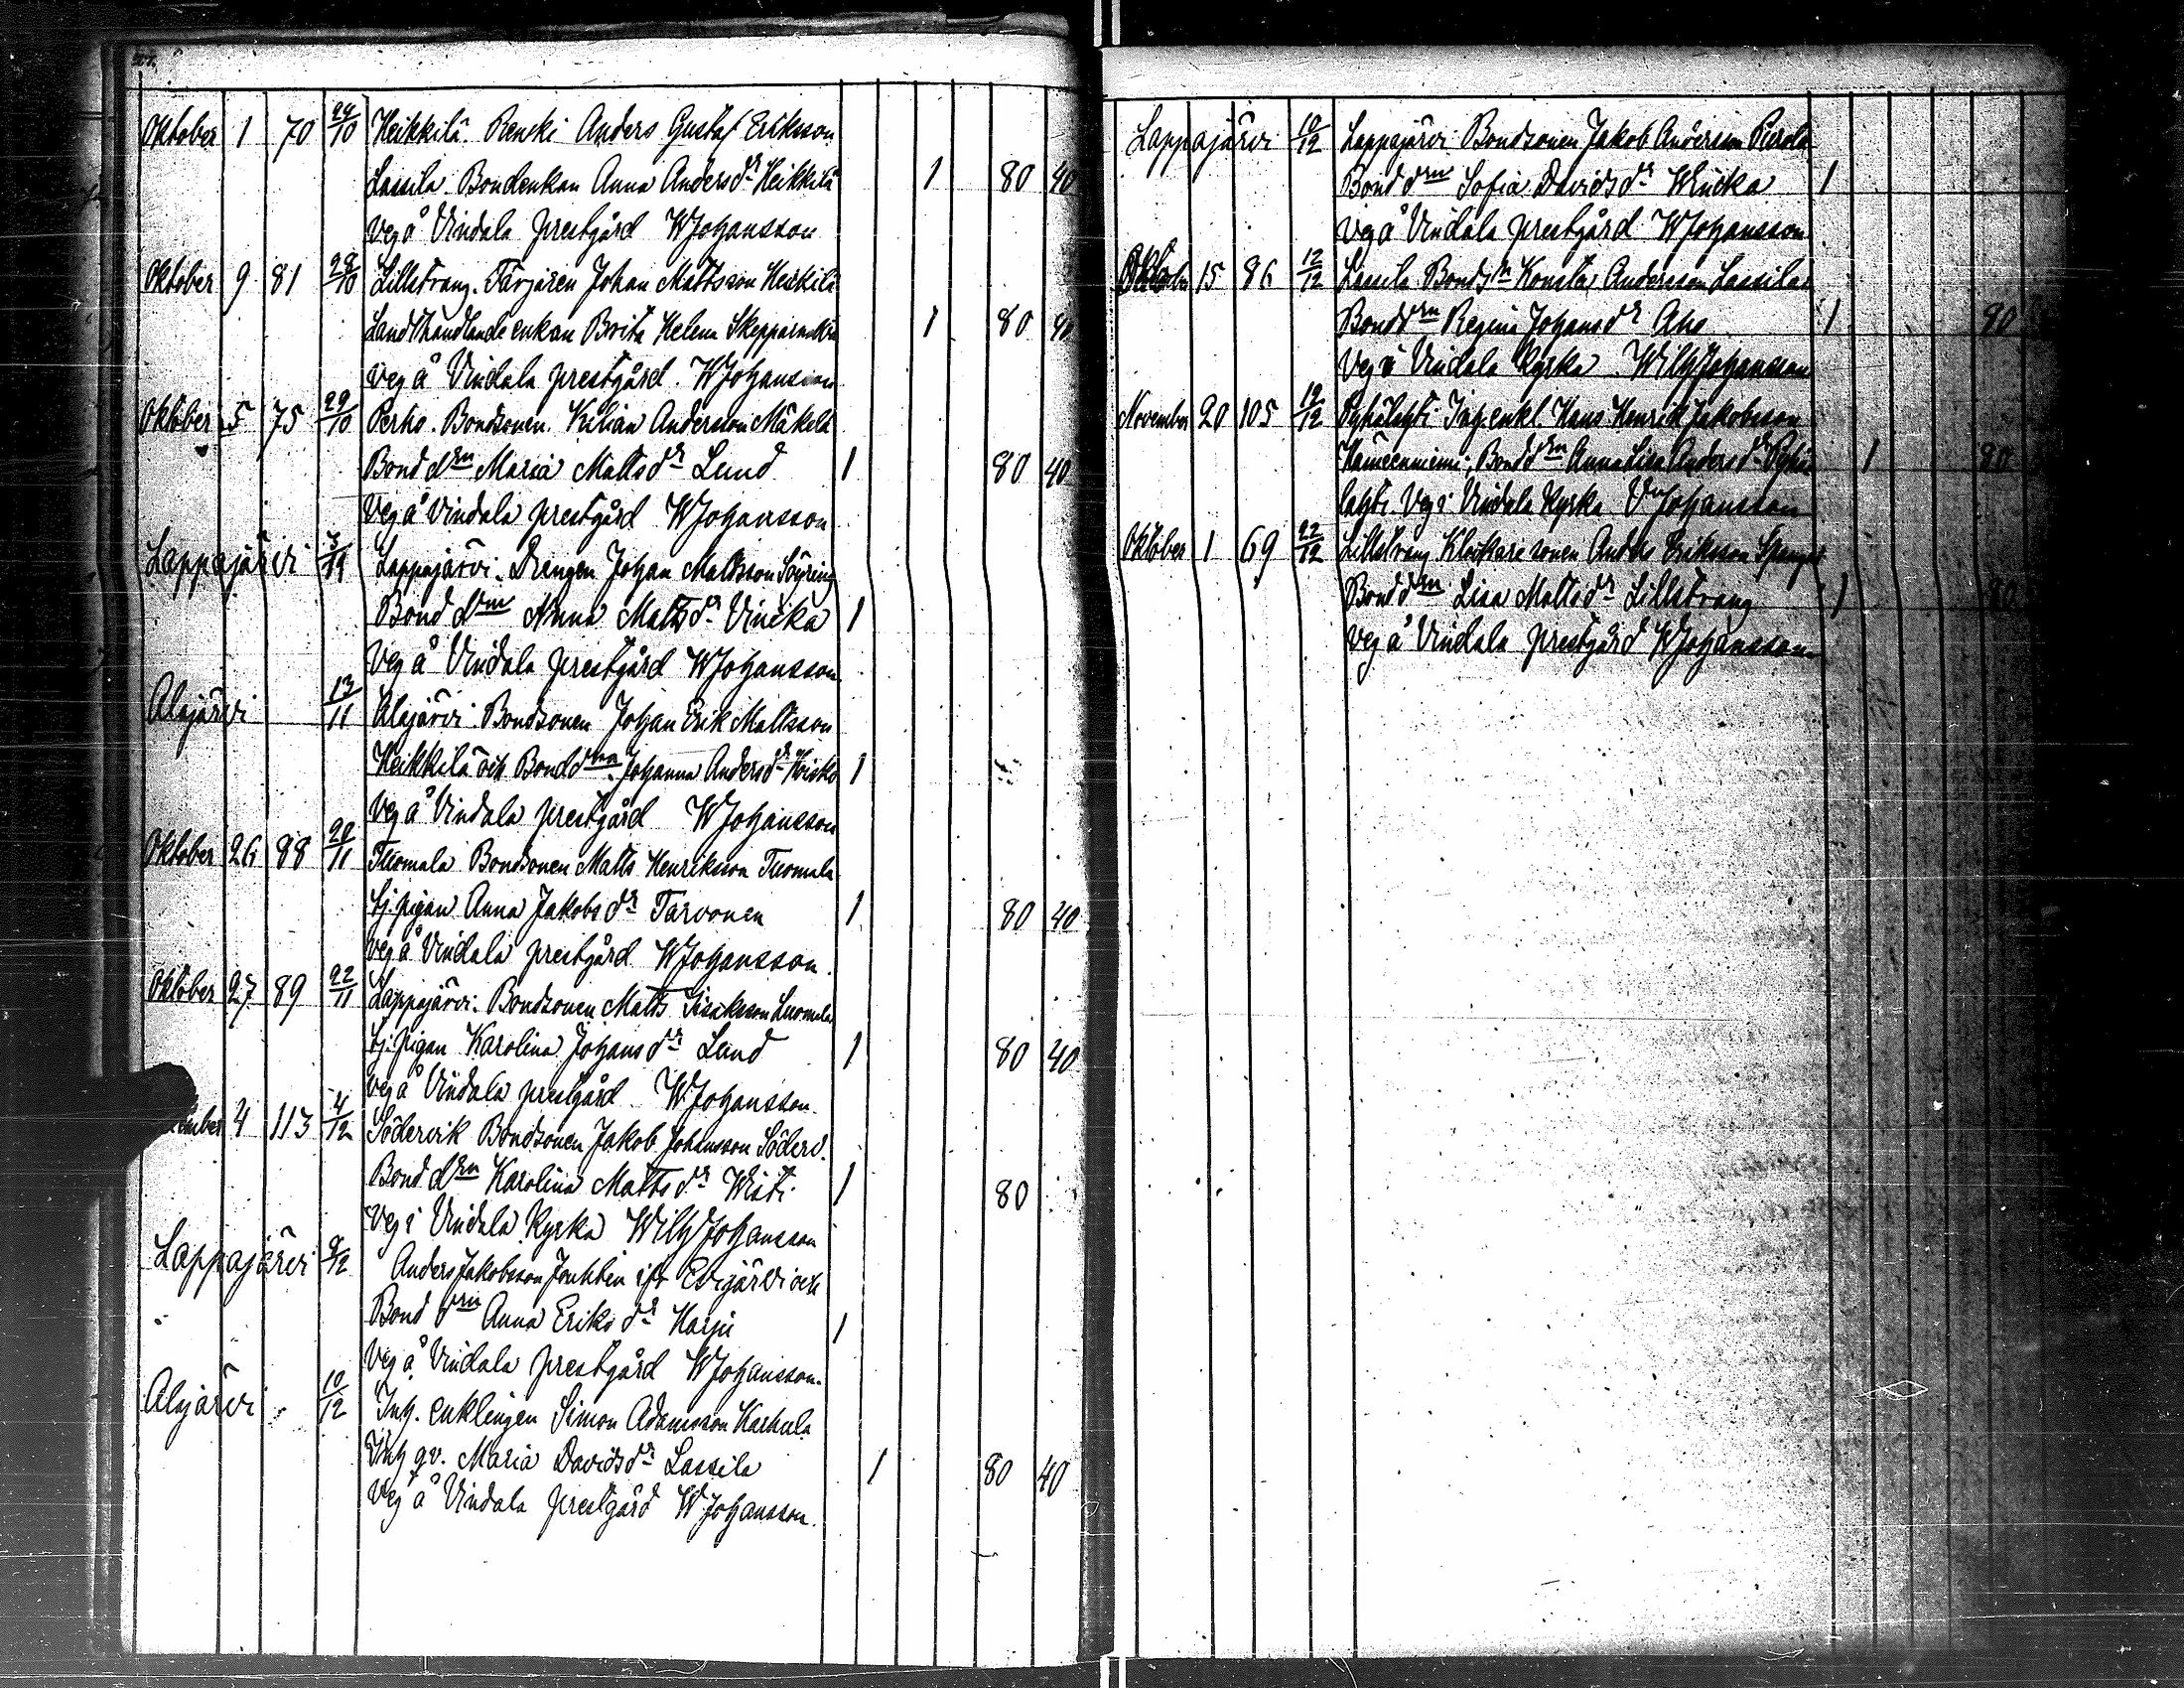 Oktober 1 70 24/10 Heikkilä. Renki Anders Gustaf Eriksson
Lassila Bondenkan Anna Andersdr Heikkilä 1 80 40
Veg å Vindala prestgård WJohansson
Oktober 9 81 28/10 Lillstrang. Färjaren Johan Mattsson Heikkilä
Landthandlande enkan Brita Helena 1 80 40
Veg å Vindala prestgård. WJohansson
Oktober 5 75 29/10 Perho. Bondsonen. Kilian Andersson Mäkelä
Bonddrn Maria Mattsdr Lund 1 80 40
Veg å Vindala prestgård WJohansson
Lappajärvi Lappajärvi. Drängen Johan Mattsson
Bonddrn Anna Mattsdr Vinčka 1
Veg å Vindala prestgård WJohansson
Alajärvi 13/11 Alajärvi Bondsonen Johan Erik Mattsson
Heikkilä och Bonddrn Johanna Andersdr 1
Veg å Vindala prestgård WJohansson
Oktober 26 88 /11 Tuomala Bondsonen Matts Henriksson Tuomala
tj. pigan Anna Jakobsdr Tarvonen 1 80 40
Veg å Vindala prestgård WJohansson.
Oktober 27 89 22/11 Lappajärvi. Bondsonen Matts Isaksson Luomala
tj. pigan Karolina Johansdr Lund 1 80 40
Veg å Vindala prestgård. WJohansson.
ember 4 113 4/12 Södervik Bondsonen Jakob Johansson Söderv.
Bonddrn Karolina Mattsdr Wisti 1 80
Veg i Vindala Kyrka Wilh Johansson
Lappajärvi 9/12 Anders Jakobsson ifr Evijärvi och
Bonddrn Anna Eriksdr Harju 1
Veg å Vindala prestgård WJohansson.
Alajärvi 10/12 Inh. enklingen Simon Adamsson Karhula
Inh qv. Maria Davidsdr Lassila 1 80 40
Veg å Vindala prestgård WJohansson.
Lappajärvi 10/12 Lappajärvi Bondsonen Jakob Andersson
Bonddrn Sofia Davidsdr 1
Veg å Vindala prestgård WJohansson
Oktober 15 86 12/12 Lassila Bonds Konsta Andersson Lassila
Bonddrn Regina Johansdr Aho 1 80
Veg i Vindala Kyrka Wilh Johansson
November 20 105 12/12 Pyhälahti Inh. enkl. Hans Henrik Jakobsson
Hämeenniemi, Bonddrn Anna Lisa Andersdr Pyhä 1 80
lahti. Veg i Vindala Kyrka Johansson
Oktober 1 69 22/12 Lillstrang Klockaresonen Anders Eriksson
Bonddrn Lisa Mattsdr Lillstrang 1 80
Veg å Vindala prestgård WJohansson